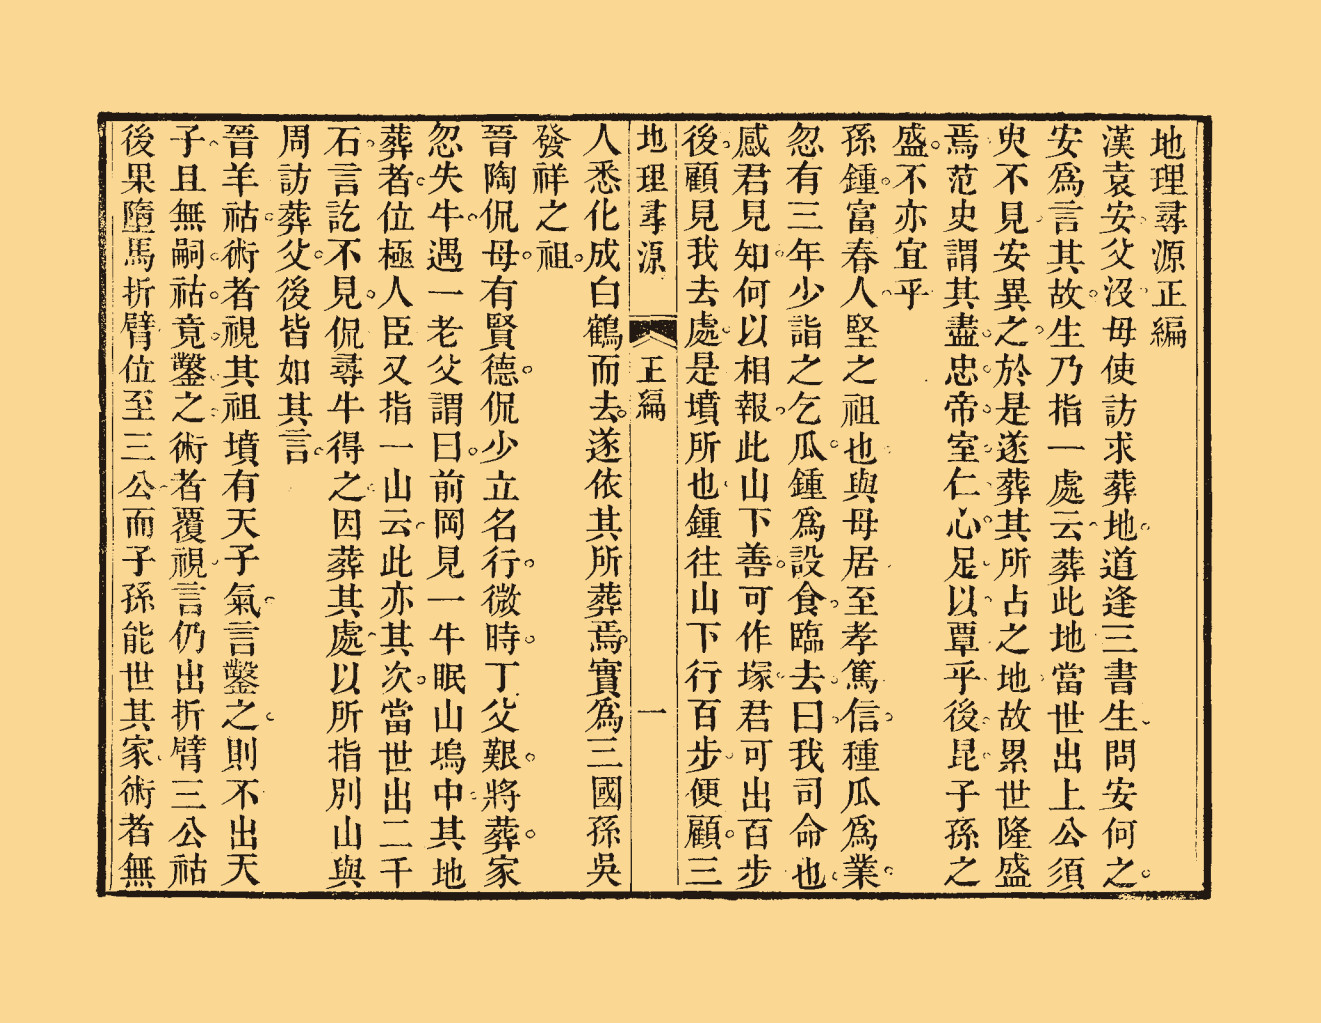 地理尋源正編
漢袁安父沒母使訪求葬地道逢三書生問安何之
安爲言其故生乃指一處云葬此地當世出上公須
臾不見安異之於是遂葬其所占之地故累世隆盛
焉范史謂其盡忠帝室仁心足以覃乎後昆子孫之
盛不亦宜乎
孫鍾富春人堅之祖也與母居至孝篤信種瓜爲業
忽有三年少詣之乞瓜鍾爲設食臨去曰我司命也
感君見知何以相報此山下善可作塚君可出百步
後顧見我去處是墳所也鍾往山下行百步便顧三
地理尋源 正編 一
人悉化成白鶴而去遂依其所葬焉實爲三國孫吳
發祥之祖
晉陶侃母有賢德侃少立名行微時丁父艱將葬家
忽失牛遇一老父謂曰前岡見一牛眠山塢中其地
葬者位極人臣又指一山云此亦其次當世出二千
石言訖不見侃尋牛得之因葬其處以所指別山與
周訪葬父後皆如其言
晉羊祜術者視其祖墳有天子氣言鑿之則不出天
子且無嗣祜竟鑿之術者覆視言仍出折臂三公祜
後果墮馬折臂位至三公而子孫能世其家術者無